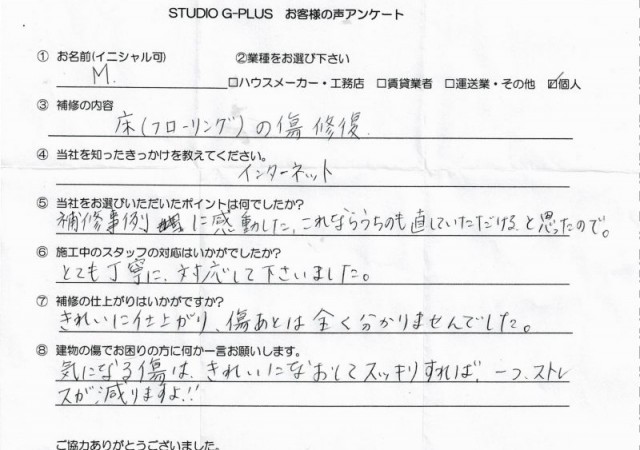 STUDIO G-PLUS お客様の声アンケート
① お名前(イニシャル可) ②業種をお選び下さい
M.
□ハウスメーカー・工務店 □賃貸業者 □運送業・その他 ☑個人
③ 補修の内容
床(フローリング)の傷修復
④ 当社を知ったきっかけを教えてください。
インターネット
⑤ 当社をお選びいただいたポイントは何でしたか?
補修事例に感動した、これならうちのも直していただけると思ったので。
⑥ 施工中のスタッフの対応はいかがでしたか?
とても丁寧に、対応して下さいました。
⑦ 補修の仕上がりはいかがですか?
きれいに仕上がり、傷あとは全く分かりませんでした。
⑧ 建物の傷でお困りの方に何か一言お願いします。
気になる傷は、きれいになおしてスッキリすれば、一つ、ストレ
スが減りますよ!!
ご協力ありがとうございました。